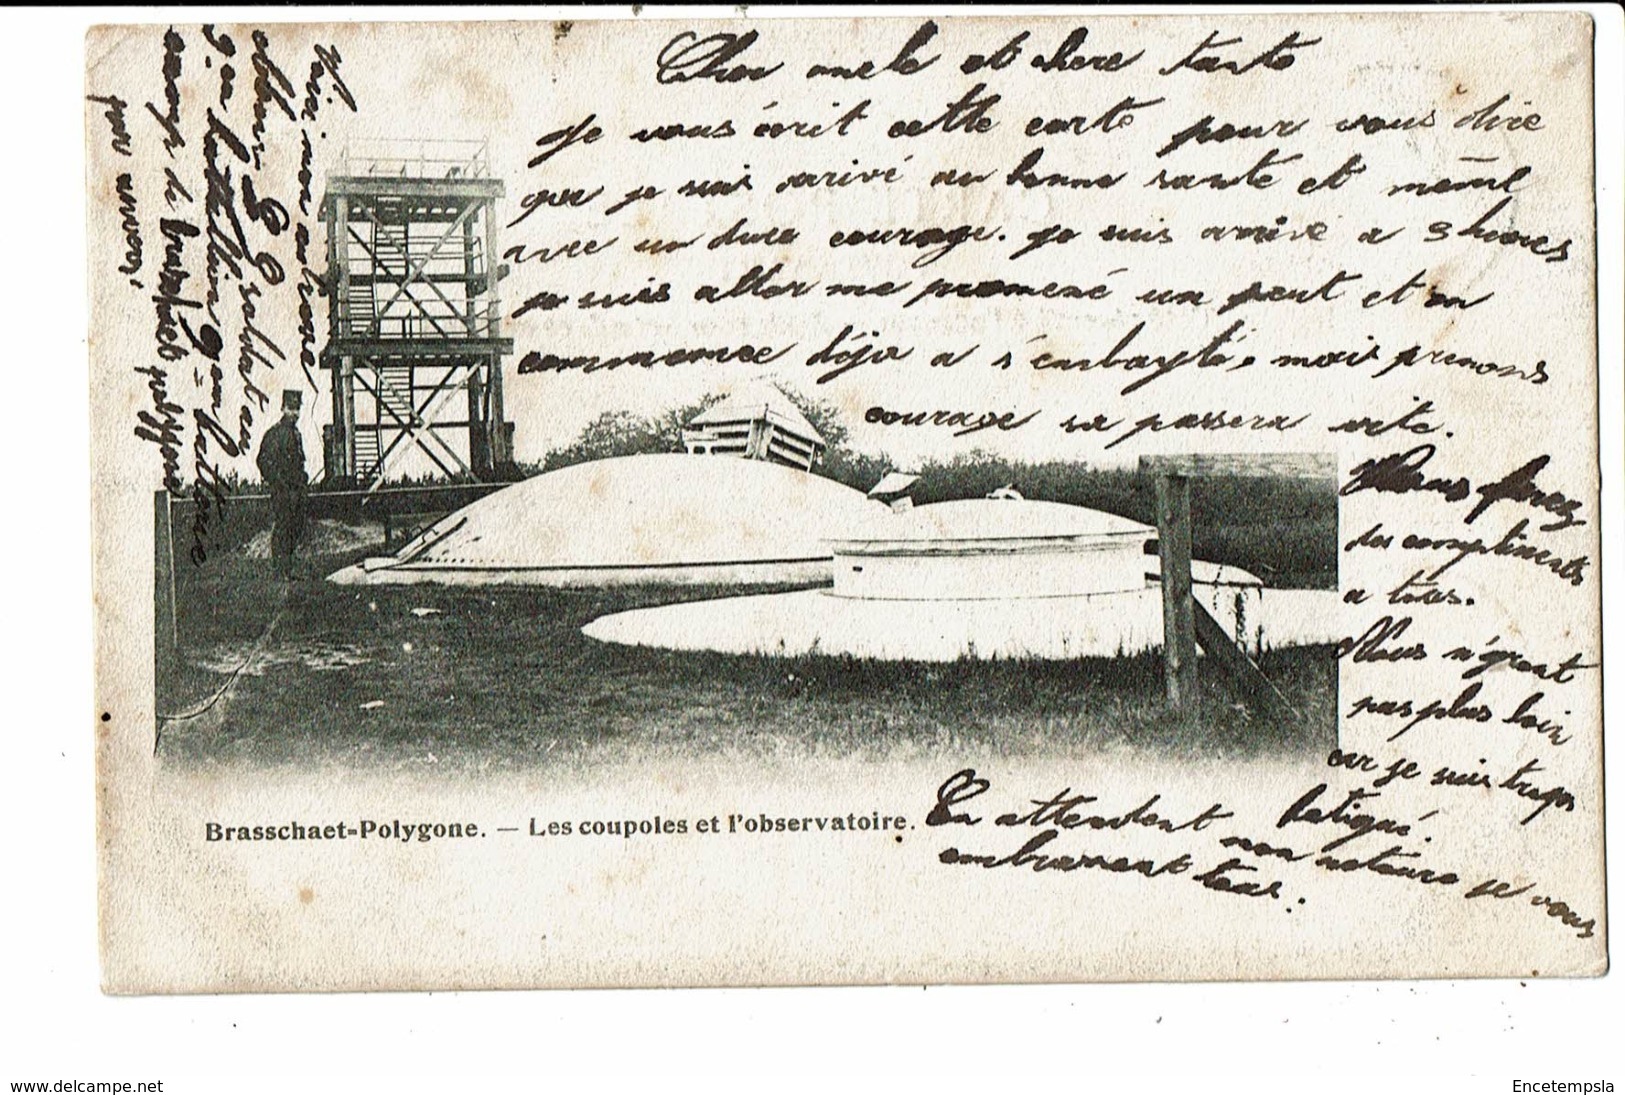 Cher oncle et chere tante
Je vous écrit cette carte pour vous dire
que je suis arrivé en bonne sante et même
avec un dure courage. je suis arrivé a 3 heures
je suis aller me promené un peut et on
commence déja a s'embayté, mais prenons
courage sa passera vite.
Vous ferez
des compliments
a tous.
Nous n'iront
pas plus loin
car je suis trop
fatigué.
En attendent non notaire je vous
embrassent tous.
Voici mon adresse
soldat au
g.on batterie
camp de braschaet polygone
par anvers,
Brasschaet-Polygone. — Les coupoles et l'observatoire.
www.delcampe.net
Encetempsla